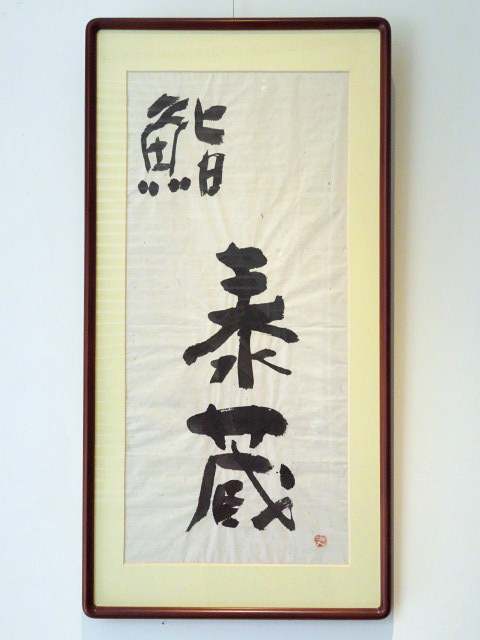 鮨
泰蔵